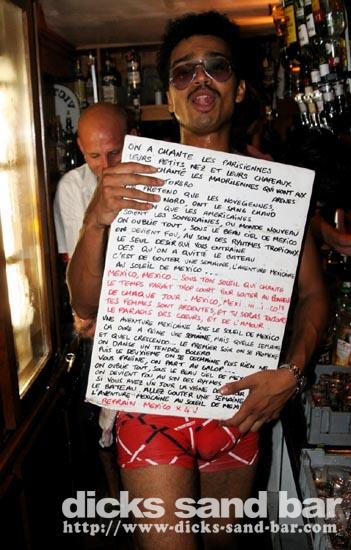 ON A CHANTÉ LES PARISIENNES
LEURS PETITS NEZ ET LEURS CHAPEAUX
CHANTÉ LES MADRILÈNES QUI VONT AUX
ARÈNES
TORERO
PRÉTEND QUE LES NORVÉGIENNES
NORD, ONT LE SANG CHAUD
QUE LES AMÉRICAINES
SOIENT LES SOUVERAINES, DU MONDE NOUVEAU
ON OUBLIE TOUT, SOUS LE BEAU CIEL DE MEXICO
ON DEVIENT FOU, AU SON DES RYTHMES TROPICAUX
LE SEUL DESIR QUI VOUS ENTRAINE
DES QU'ON A QUITTÉ LE BATEAU
C'EST DE GOUTER UNE SEMAINE, L'AVENTURE MEXICAINE
AU SOLEIL DE MEXICO...
MEXICO, MEXICO... SOUS TON SOLEIL QUI CHANTE
LE TEMPS PARAIT TROP COURT POUR GOUTER AU BONHEUR
DE CHAQUE JOUR. MEXICO, MEXI...I-CO
TES FEMMES SONT ARDENTES, ET TU SERAS TOUJOURS
LE PARADIS DES COEURS, ET DE L'AMOUR
UNE AVENTURE MEXICAINE SOUS LE SOLEIL DE MEXICO
CA DURE A PEINE UNE SEMAINE, MAIS QUELLE SEMAINE
ET QUEL CRESCENDO... LE PREMIER SOIR ON SE PROMENE
ON DANSE UN TENDRE BOLERO
PUIS LE DEUXIEME ON SE DECHAINE PUIS RIEN NE
VOUS FREINE, ON PART AU GALOP...
ON OUBLIE TOUT, SOUS LE BEAU CIEL DE MEXICO
ON DEVIENT FOU AU SON DES RYTHMES
SI VOUS AVEZ UN JOUR LA VEINE DE
LE BATEAU ALLEZ GOUTER UNE SEMAINE
L'AVENTURE MEXICAINE AU SOLEIL DE MEXICO
REFRAIN MEXICO X 4
dicks sand bar
http://www.dicks-sand-bar.com/